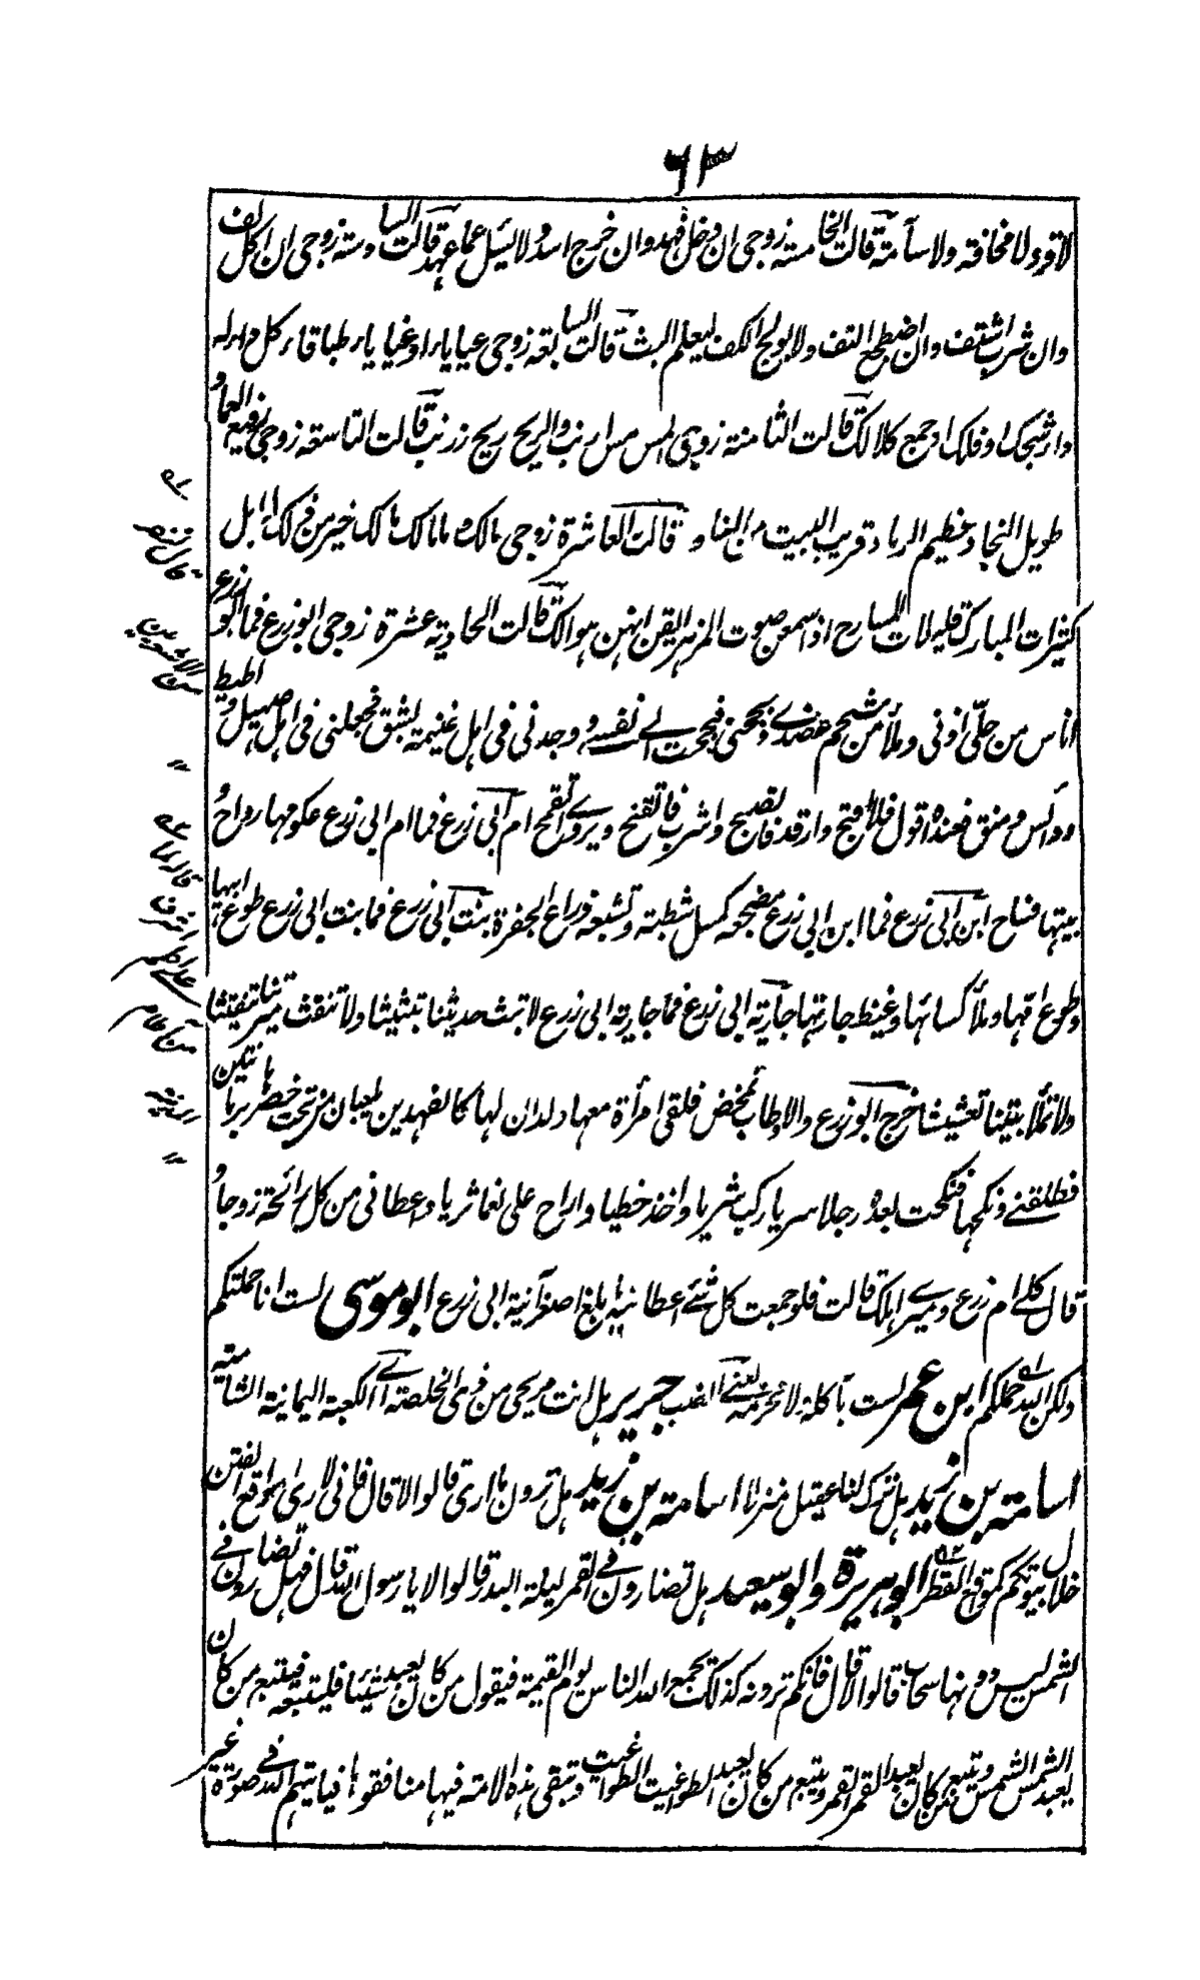 ٦٣
لا قر ولا مخافة ولا سآمة قالت الخامسة زوجى ان دخل فهد وان خرج اسد ولا يسئل عما عهد قالت السادسة زوجى ان اكل لف
وان شرب اشتف وان اضطجع التف ولا يولج الكف ليعلم البث قالت السابعة زوجى عياياء او غياياء طباقاء كل داء له
داء شجك او فلك او جمع كلا لك قالت الثامنة زوجى المس مس ارنب والريح ريح زرنب قالت التاسعة زوجى رفيع العماد
طويل النجاد عظيم الرماد قريب البيت من الناد قالت العاشرة زوجى مالك وما مالك مالك خير من ذلك له ابل
كثيرات المبارك قليلات المسارح اذا سمعن صوت المزهر ايقن انهن هوالك قالت الحادية عشرة زوجى ابو زرع فما ابو زرع
اناس من حلى اذنى وملأ من شحم عضدى وبجحنى فبجحت الى نفسى وجدنى فى اهل غنيمة بشق فجعلنى فى اهل صهيل واطيط
ودائس ومنق فعنده اقول فلا اقبح وارقد فاتصبح واشرب فاتقنح ويروى فاتقمح ام ابى زرع فما ام ابى زرع عكومها رداح و
بيتها فساح ابن ابى زرع فما ابن ابى زرع مضجعه كمسل شطبة وتشبعه ذراع الجفرة بنت ابى زرع فما بنت ابى زرع طوع ابيها
وطوع امها وملأ كسائها وغيظ جارتها جارية ابى زرع فما جارية ابى زرع لا تبث حديثنا تبثيثا ولا تنقث ميرتنا تنقيثا
ولا تملأ بيتنا تعشيشا خرج ابو زرع والاوطاب تمخض فلقى امرأة معها ولدان لها كالفهدين يلعبان من تحت خصرها برمانتين
فطلقنى ونكحها فنكحت بعده رجلا سريا ركب شريا واخذ خطيا واراح على نعما ثريا واعطانى من كل رائحة زوجا و
قال كلى ام زرع وميرى اهلك قالت فلو جمعت كل شئ اعطانيه ما بلغ اصغر آنية ابى زرع ابو موسى لست انا حملتكم
ولكن الله حملكم ابن عمر لست بآكله ولا محرمه يعنى الضب جرير هل انت مريحى من ذى الخلصة أى الكعبة اليمانية الشامية
اسامة بن زيد هل ترك لنا عقيل منزلا اسامة بن زيد هل ترون ما ارى قالوا لا قال فانى لارى مواقع الفتن
خلال بيوتكم كموقع القطر ابو هريرة وابو سعيد هل تضارون فى القمر ليلة البدر قالوا لا يا رسول الله قال فهل تضارون فى
الشمس ليس دونها سحاب قالوا لا قال فانكم ترونه كذلك يجمع الله الناس يوم القيمة فيقول من كان يعبد شيئا فليتبعه فيتبع من كان
يعبد الشمس الشمس ويتبع من كان يعبد القمر القمر ويتبع من كان يعبد الطواغيت الطواغيت وتبقى هذه الامة فيها منافقوها فيأتيهم الله فى صورة غير